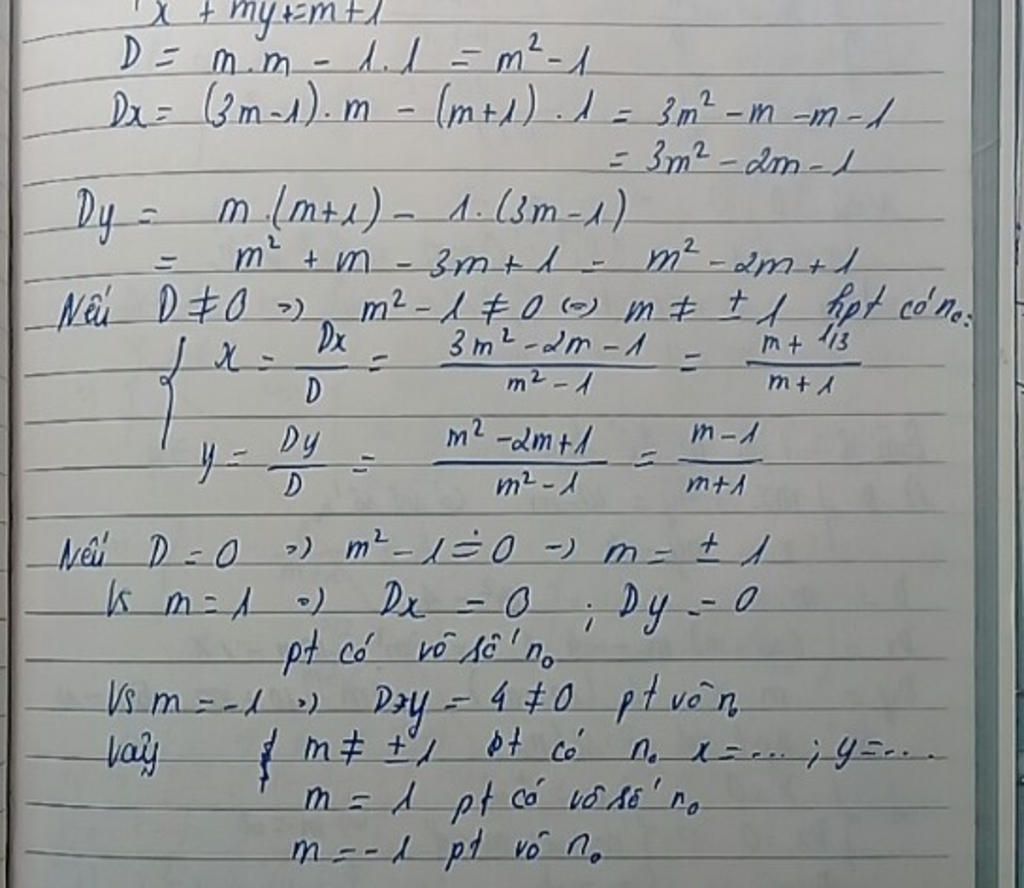 x + my = m + 1
D = m.m - 1.1 = m² - 1
Dx = (3m-1).m - (m+1).1 = 3m² - m - m - 1
= 3m² - 2m - 1
Dy = m.(m+1) - 1.(3m-1)
= m² + m - 3m + 1 = m² - 2m + 1
Nếu D ≠ 0 => m² - 1 ≠ 0 <=> m ≠ ± 1 hpt có no:
{ x = Dx/D = (3m² - 2m - 1)/(m² - 1) = (m + 1/3)/(m + 1)
y = Dy/D = (m² - 2m + 1)/(m² - 1) = (m - 1)/(m + 1)
Nếu D = 0 => m² - 1 = 0 => m = ± 1
Vs m = 1 => Dx = 0 ; Dy = 0
pt có vô số no
Vs m = -1 => Dy = 4 ≠ 0 pt vô no
Vậy { m ≠ ± 1 pt có no x = ... ; y = ...
m = 1 pt có vô số no
m = -1 pt vô no